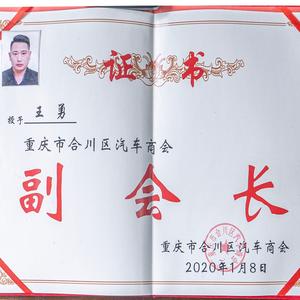 证书
授予 王勇
重庆市合川区汽车商会
副会长
重庆市合川区汽车商会
2020年1月8日